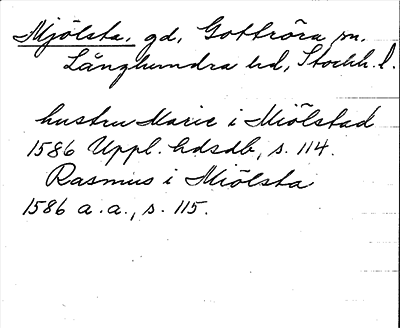 Mjölsta, gd, Gottröra sn.
Långhundra hd, Stockh. l.
hustru Marie i Miölstad
1586 Uppl. hdsdb, s. 114.
Rasmus i Miölsta
1586 a. a., s. 115.